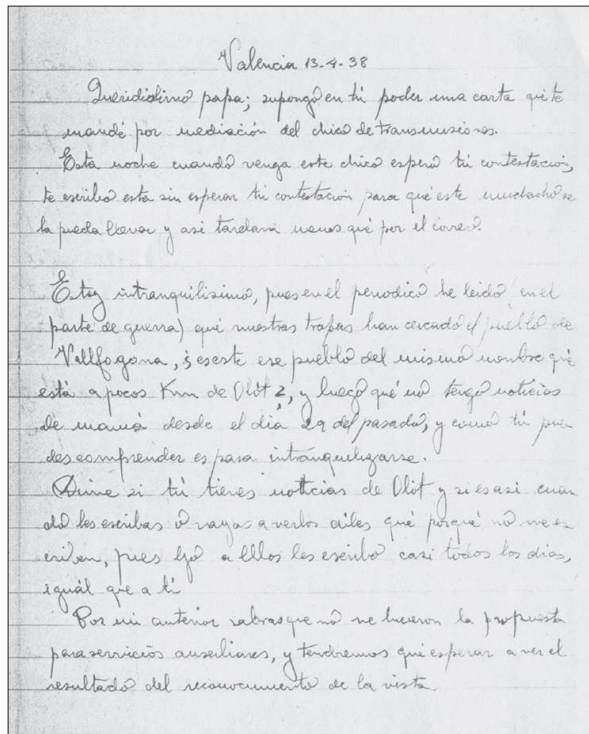 Valencia 13-4-38
Queridisimo papa; supongo en tú poder una carta qué te
mandé por mediación del chico de transmisiones.
Esta noche cuando venga este chico espero tú contestación,
te escribo esta sin esperar tú contestación para qué este muchacho se
la pueda llevar y asi tardará menos qué por el correo.
Estoy intranquilisimo, pues en el periodico he leido (en el
parte de guerra) qué nuestras tropas han cercado el pueblo de
Vallfogona, ¿es este ese pueblo del mismo nombre qué
está a pocos Km de Olót?, y luego qué no tengo noticias
de mamá desde el día 29 del pasado, y como tú pue
des comprender es para intranquilizarse.
Dime si tú tienes noticias de Olót y si es asi cuan
do les escribas ó vayas a verlos diles qué porqué no me es
criben, pues yo a ellos les escribo casi todos los dias,
iguál que a tí
Por mi anterior sabras que no me hicieron la propuesta
para servicios auxiliares, y tendremos qué esperar a ver el
resultado del reconocimiento de la vista.